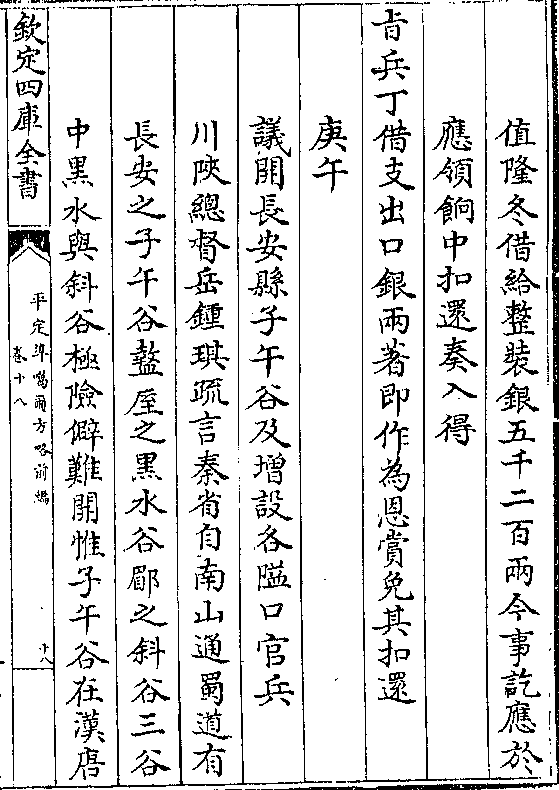 值隆冬借給整裝銀五千二百兩今事訖應於
應領餉中扣還奏入得
㫖兵丁借支出口銀兩著即作為恩賞免其扣還
庚午
議開長安縣子午谷及增設各隘口官兵
川陝總督岳鍾琪疏言秦省自南山通蜀道有
長安之子午谷盩厔之黑水谷郿之斜谷三谷
中黑水與斜谷極險僻難開惟子午谷在漢唐
欽定四庫全書
平定準噶爾方略前編
卷十八
十八